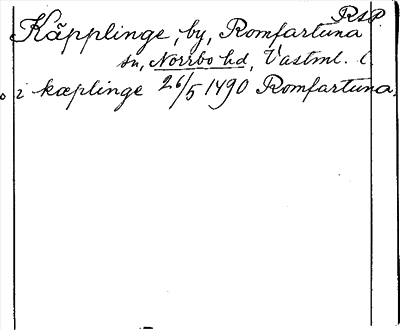 RAP.
Käpplinge, by, Romfartuna
sn, Norrbo hd, Västml. l.
i kæplinge 26/5 1490 Romfartuna.